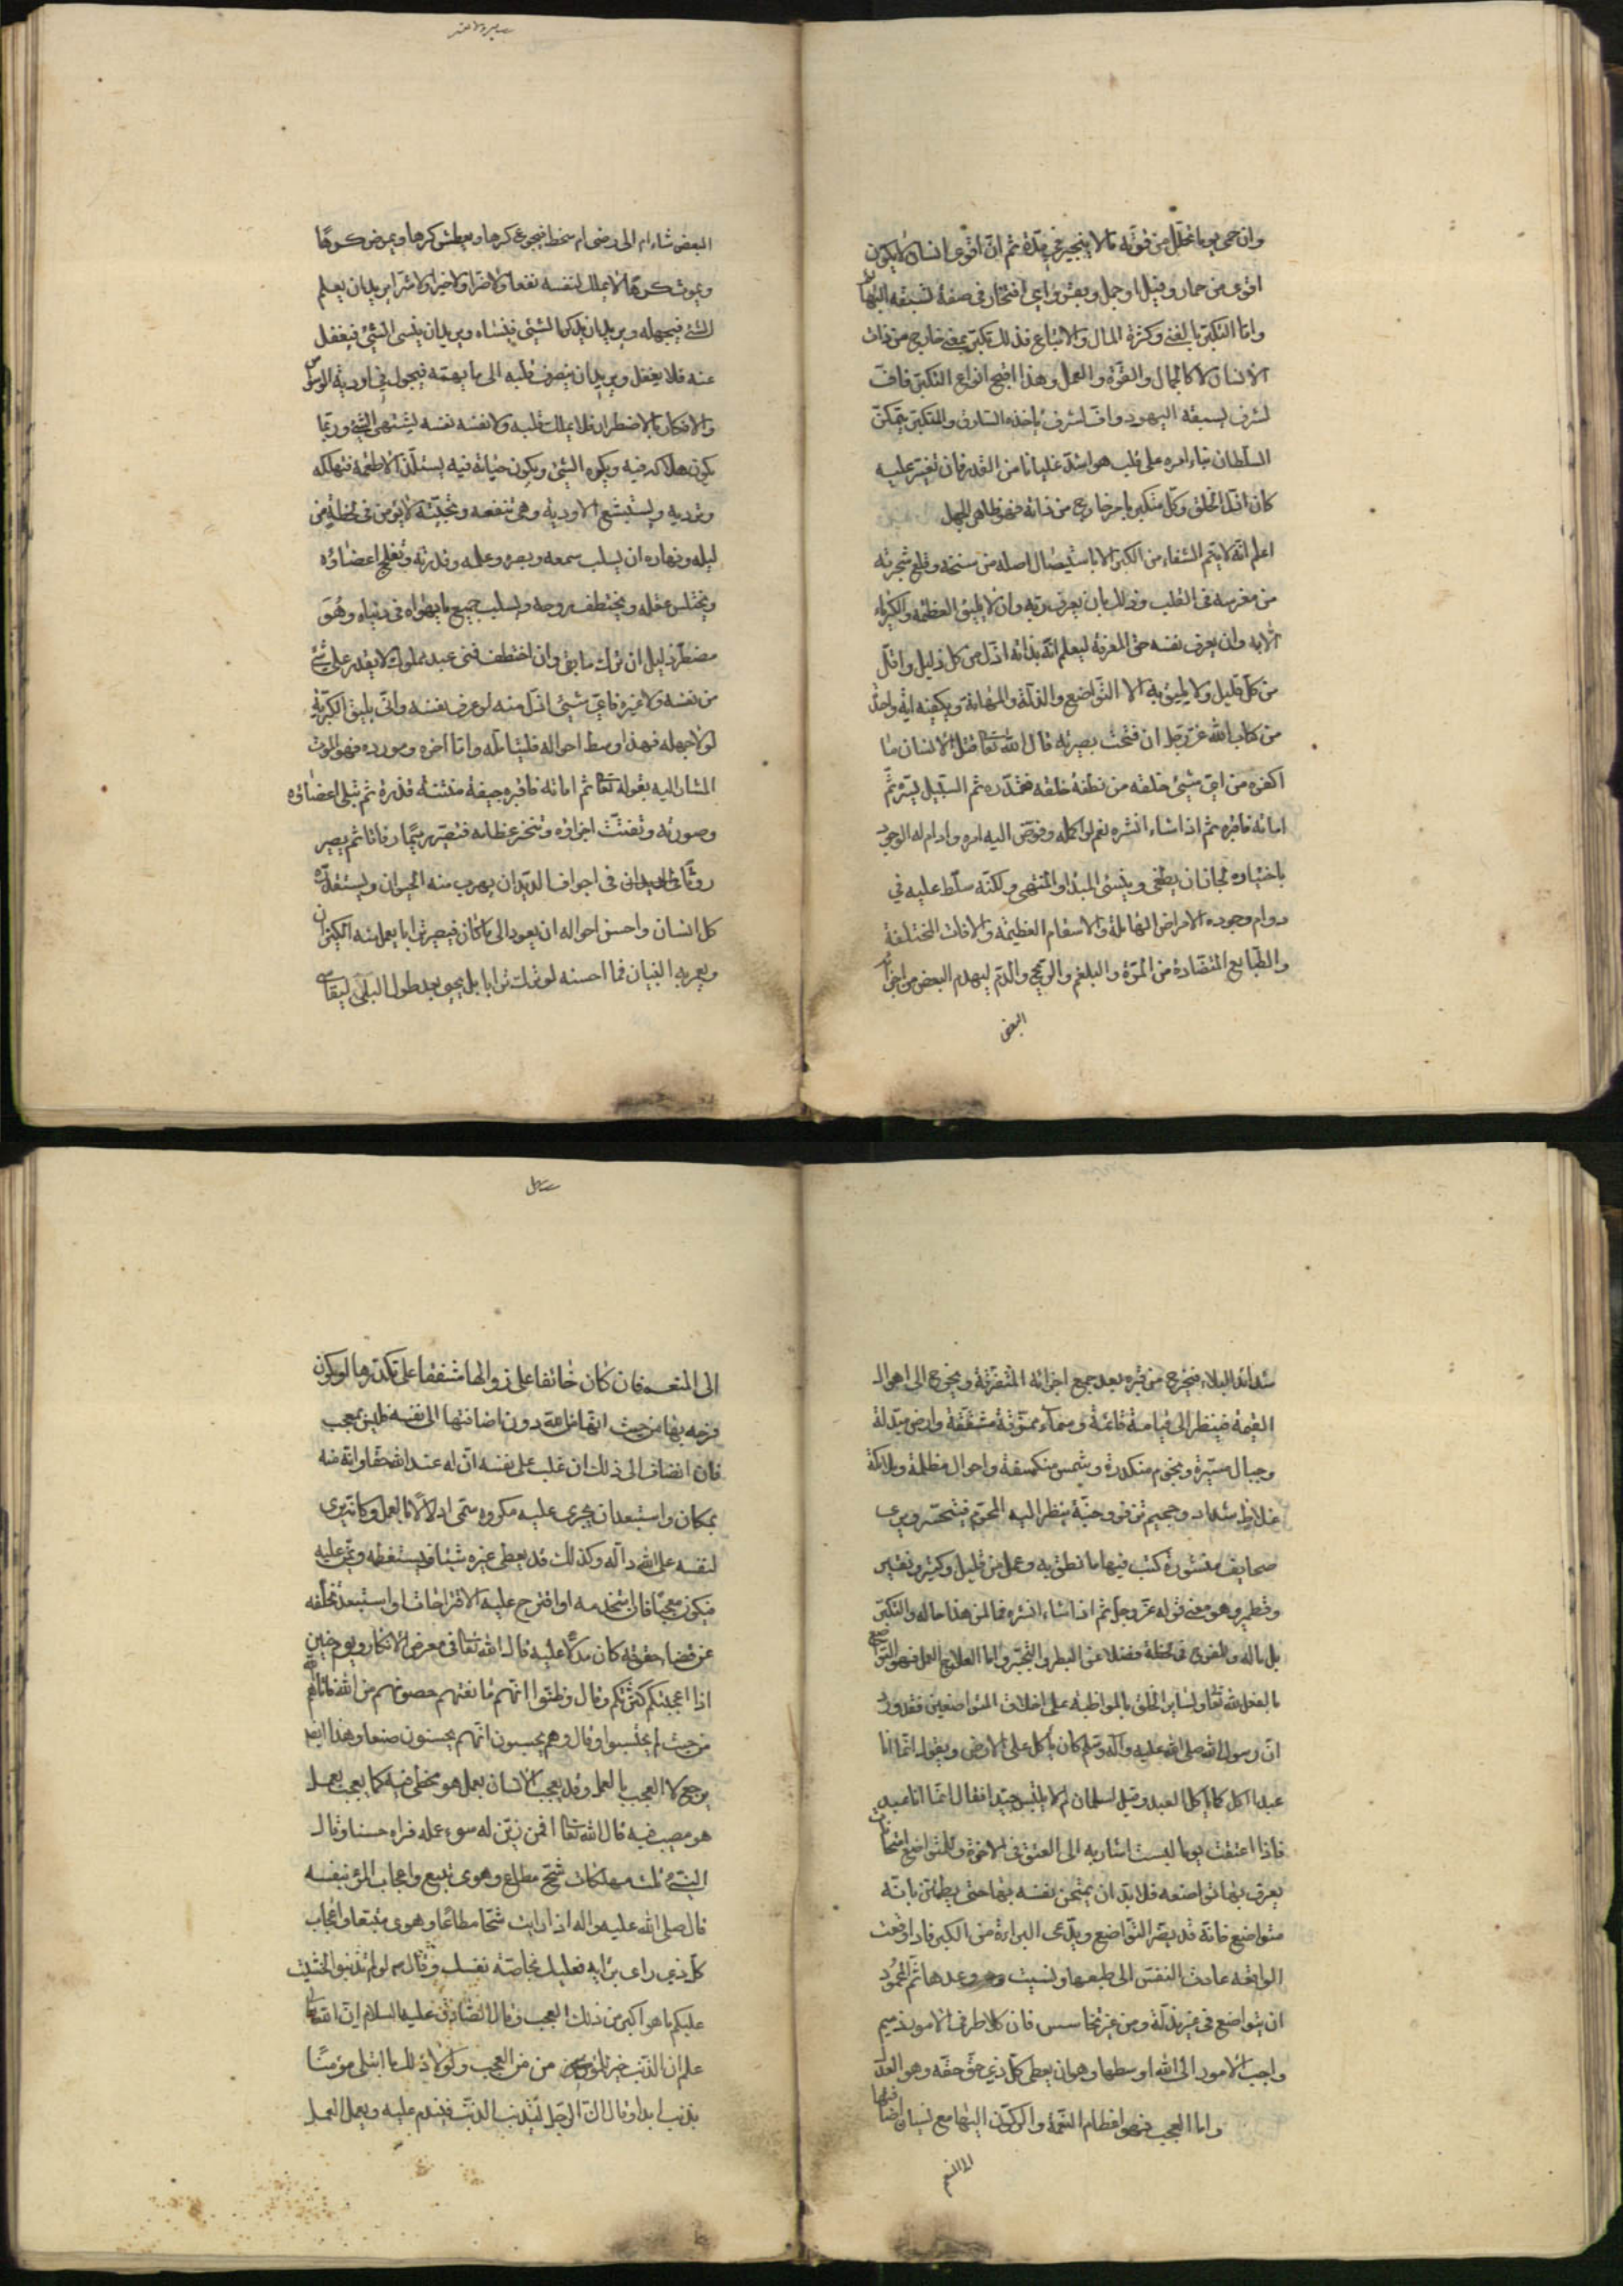 وان حمى يوما تحلل من قوته ما لا ينجبر في مدة ثم انّ اقوى انسان لا يكون
اقوى من حمار وفيل او جمل وبقر واي افتخار في صفة تسبقه البهائم
وامّا التكبّر بالغنى وكثرة المال والاتباع فذلك تكبّر بمعنى خارج من ذات
الانسان لا كالجمال والقوّة والعمل وهذا اقبح انواع التكبّر فافّ
لشرف يسبقه اليهود وافّ لشرف ياخذه السارق والمتكبّر بتمكين
السلطان بناء امره على قلب هو اشدّ غليانا من القدر فان تغيّر عليه
كان اذلّ الخلق وكلّ متكبّر بامر خارج من ذاته فهو ظاهر الجهل
اعلم انّه لا يتم الشفاء من الكبر الا باستيصال اصله من سنخه وقلع شجرته
من مغرسه في القلب وذلك بان يعرف ربّه وان لا يليق العظمة والكبرياء
الّا به وان يعرف نفسه حق المعرفة ليعلم انّه بذاته اذلّ من كل ذليل واقلّ
من كلّ قليل ولا يليق به الا التّواضع والذلّة والمهانة ويكفيه اية واحدة
من كتاب الله عزّ وجلّ ان فتحت بصيرته قال الله تعالى قتل الانسان ما
اكفره من ايّ شيئ خلقه من نطفة خلقه فقدّره ثم السبيل يسّره ثمّ
اماته فاقبره ثم اذا شاء انشره نعم لو اكمله وفوّض اليه امره وادام له الوجود
باختياره لجاز ان يطغى وينسى المبدأ والمنتهى ولكنّه سلّط عليه في
دوام وجوده الامراض الهايلة والاسقام العظيمة والافات المختلفة
والطّبايع المتضادة من المرّة والبلغم والريح والدّم ليهدم البعض من اجزائه
البعض
البعض شاء ام ابى رضى ام سخط فيجوع كرها ويعطش كرها ويمرض كرها
ويموت كرها لا يملك لنفسه نفعا ولا ضرا ولا خيرا ولا شرا يريد ان يعلم
الشئ فيجهله ويريد ان يذكر الشئ فينساه ويريد ان ينسى الشئ فيغفل
عنه فلا يغفل ويريد ان ينصرف قلبه الى ما يهمّه فيجول في اودية الوسواس
والافكار بالاضطرار فلا يملك قلبه قلبه ولا نفسه نفسه يشتهى الشئ وربّما
يكون هلاكه فيه ويكره الشئ ويكون حياته فيه يستلذّ الاطعمة فتهلكه
وترديه ويستبشع الادوية وهي تنفعه وتحييه لا يؤمن في لحظة من
ليله ونهاره ان يسلب سمعه وبصره وعلمه وقدرته وتفلج اعضاؤه
ويختلس عقله ويختطف روحه ويسلب جميع ما يهواه في دنياه وهو
مضطرّ ذليل ان ترك ما بقى وان اختطف فنى عبد مملوك لا يقدر على شئ
من نفسه ولا غيره فاي شيئ اذلّ منه لو عرف نفسه وانّى يليق الكبر به
لولا جهله فهذا اوسط احواله فليتامّله وامّا اخره ومورده فهو الموت
المشار اليه بقوله تعالى ثم اماته فاقبره جيفة منتنة قذرة ثم تبلى اعضاؤه
وصورته وتفتّت اجزاؤه وتنخر عظامه فتصير رميما رفاتا ثم يصير
روثا في اجواف الديدان يهرب منه الحيوان ويستقذره
كل انسان واحسن احواله ان يعود الى ما كان فيصير ترابا يعمل منه الكيزان
ويعمر به البنيان فما احسنه لو ترك ترابا بل يحيى بعد طول البلى ليقاسى
شدائد البلاء فيخرج من قبره بعد جمع اجزائه المتفرّقة ويخرج الى اهوال
القيمة فينظر الى قيامة قائمة وسماء ممزّقة مشقّقة وارض مبدّلة
وجبال مسيّرة ونجوم منكدرة وشمس منكسفة واحوال مظلمة وملائكة
غلاظ شداد وجحيم تزفر وجنّة ينظر اليه المجرم فيتحسّر ويرى
صحايف منشورة كتب فيها ما نطق به وعمل من قليل وكثير ونقير
وقطمير وهو معنى قوله عزّ وجلّ ثم اذا شاء انشره فما لمن هذا حاله والتكبّر
بل ما له وللفرح في لحظة فضلا عن البطر والتجبّر واما العلاج العمل فهو التواضع
بالفعل لله تعالى ولساير الخلق بالمواظبة على اخلاق المتواضعين فقد ورد
انّ رسول الله صلى الله عليه وآله وسلم كان ياكل على الارض ويقول انّما انا
عبد اكل كما ياكل العبد وقيل لسلمان لم لا تلبس جديدا فقال انّما انا عبد
فاذا اعتقت يوما لبست اشار به الى العتق في الاخرة وللتواضع امتحانات
يعرف بها تواضعه فلا بدّ ان يمتحن نفسه بها حتى يطمئن بانّه
متواضع فانّه قد يضمر التّواضع ويدّعى البراءة من الكبر فاذا وقعت
الواقعه عادت النفس الى طبعها ونسيت وعدها ثمّ المحمود
ان يتواضع في غير مذلّة ومن غير تخاسس فان كلا طرفي الامور ذميم
واحب الامور الى الله اوسطها وهو ان يعطى كلّ ذي حقّ حقّه وهو العدل
واما العجب فهو اعظام النّعمة والركون اليها مع نسيان اضافتها
الى المنعم
الى المنعم فان كان خائفا على زوالها مشفقا على تكدّرها او يكون
فرحه بها من حيث انّها نعمة دون اضافتها الى نفسه فليس بمعجب
فان انضاف الى ذلك ان غلب على نفسه انّ له عند الله حقّا وانّه منه
بمكان واستبعد ان يجرى عليه مكروه سمّى ادلالا بالعمل وكانّه يرى
لنفسه على الله دالّه وكذلك قد يعطى غيره شيئا فيستعظمه ويمنّ عليه
فيكون معجبا فان استخدمه او اقترح عليه الاقتراحات او استبعد تخلّفه
عن قضاء حقوقه كان مدلّا عليه قال الله تعالى في معرض الانكار ويوم حنين
اذا اعجبتكم كثرتكم وقال وظنّوا انّهم مانعتهم حصونهم من الله فاتاهم الله
من حيث لم يحتسبوا وقال وهم يحسبون انّهم يحسنون صنعا وهذا ايضا
يرجع الى العجب بالعمل وقد يعجب الانسان بعمل هو مخطئ فيه كما يعجب بعمل
هو مصيب فيه قال الله تعالى افمن زيّن له سوء عمله فراه حسنا وقال
النبيّ ثلث مهلكات شحّ مطاع وهوى متبع واعجاب المرء بنفسه
قال صلى الله عليه واله اذا رايت شحّا مطاعا وهوى متبعا واعجاب
كلّ ذي راى برايه فعليك بخاصّة نفسك وقال لو لم تذنبوا لخشيت
عليكم ما هو اكبر من ذلك العجب وقال الصّادق عليه السلام انّ الله تعالى
علم ان الذّنب خير للمؤمن من العجب ولولا ذلك ما ابتلى مؤمنا
بذنب ابدا وقال انّ الرّجل ليذنب الذنب فيندم عليه ويعمل العمل